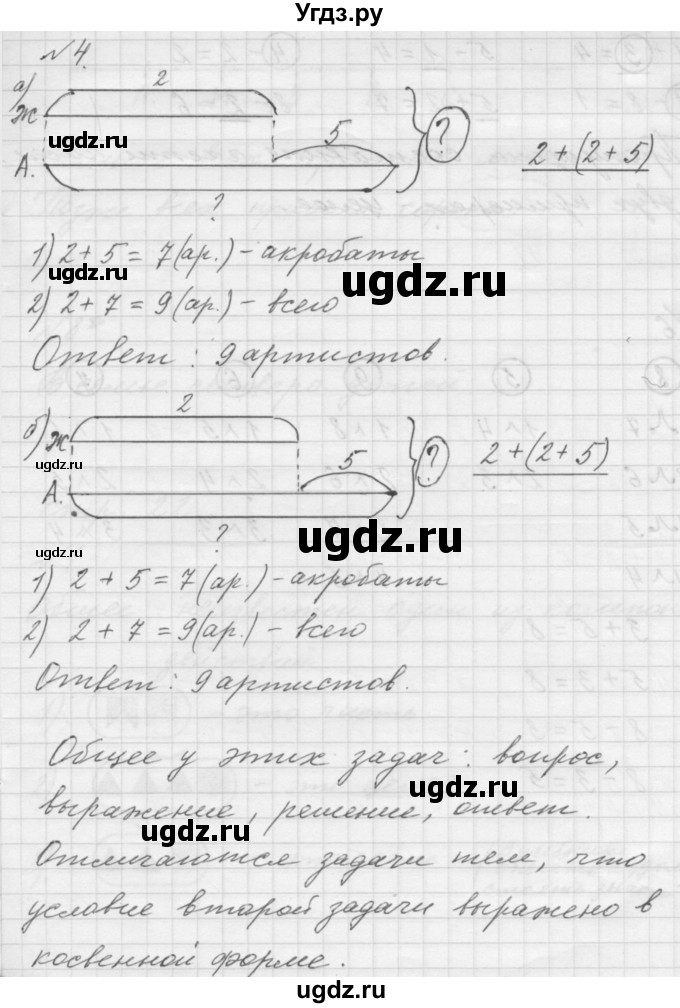 Угдз.ру
№ 4.
а)
2
Ж
5
?
2+(2+5)
ugdz.ru
А.
?
1) 2 + 5 = 7 (ар.) - акробаты
ugdz.ru
ugdz.ru
2) 2 + 7 = 9 (ар.) - всего
Ответ : 9 артистов.
2
б) Ж
5
?
2+(2+5)
ugdz.ru
А.
ugdz.ru
?
ugdz.ru
1) 2 + 5 = 7 (ар.) - акробаты
2) 2 + 7 = 9 (ар.) - всего
ugdz.ru
Ответ : 9 артистов.
Общее у этих задач : вопрос,
ugdz.ru
выражение, решение, ответ.
ugdz.ru
Отличаются задачи тем, что
условие второй задачи выражено в
ugdz.ru
косвенной форме.
ugdz.ru